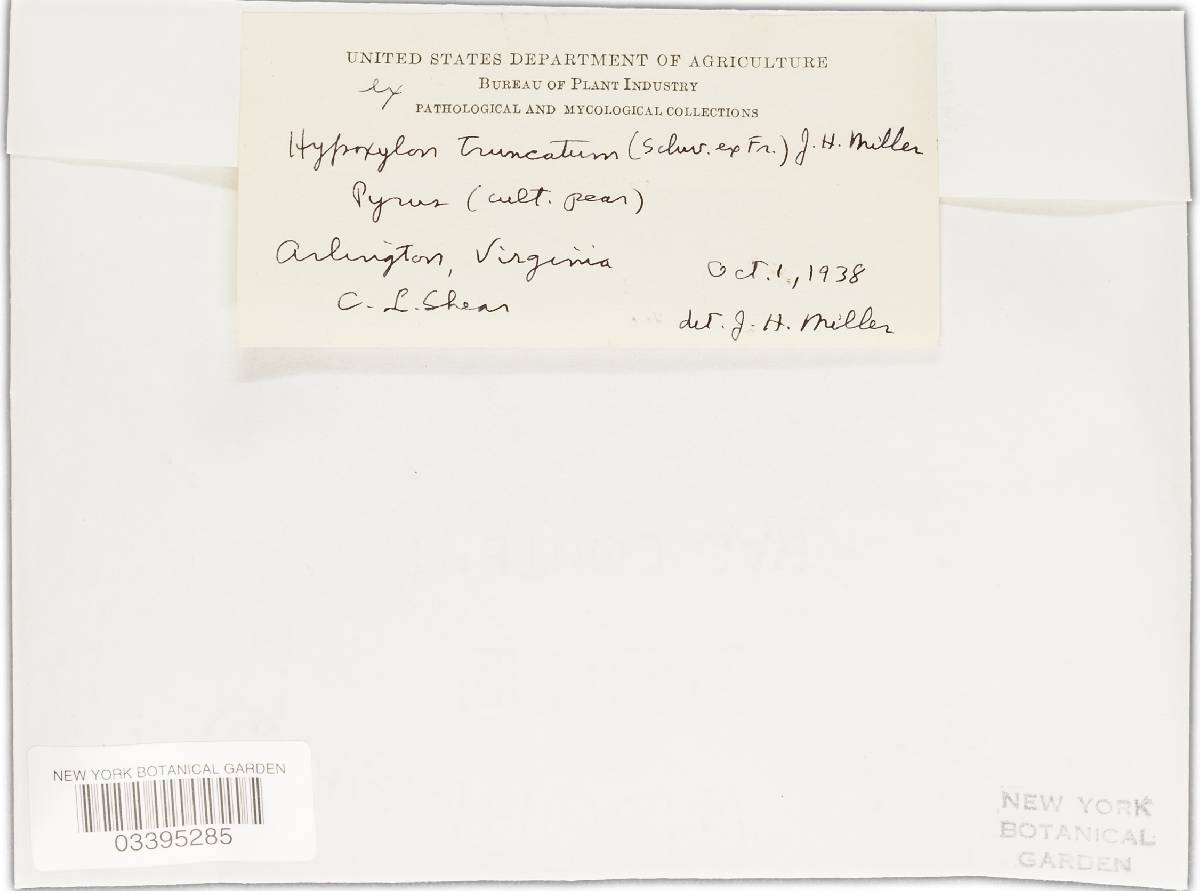 UNITED STATES DEPARTMENT OF AGRICULTURE
BUREAU OF PLANT INDUSTRY
ex
PATHOLOGICAL AND MYCOLOGICAL COLLECTIONS
Hypoxylon truncatum (Schw. ex Fr.) J. H. Miller
Pyrus (cult. pear)
Arlington, Virginia Oct. 1, 1938
C. L. Shear
det. J. H. Miller
NEW YORK BOTANICAL GARDEN
03395285
NEW YORK
BOTANICAL
GARDEN